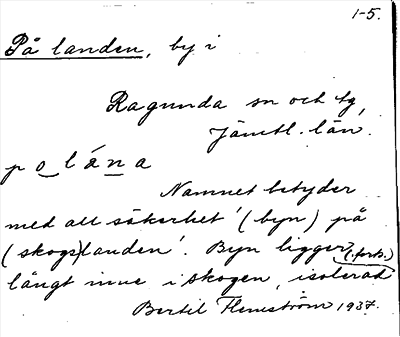 1-5.
På landen, by i
Ragunda sn och tg,
Jämtl. län.
p o l á n a
Namnet betyder
med all säkerhet '(byn) på
(skogs)landen'. Byn ligger (forts.)
långt inne i skogen, isolerad
Bertil Flemström 1937.